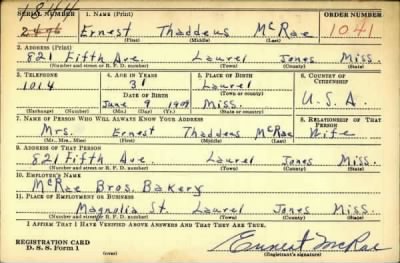 SERIAL NUMBER 1. NAME (Print) ORDER NUMBER
Ernest Thaddeus McRae 1041
(First) (Middle) (Last)
2. ADDRESS (Print)
821 Fifth Ave. Laurel Jones Miss.
(Number and street or R. F. D. number) (Town) (County) (State)
3. TELEPHONE 4. AGE IN YEARS 5. PLACE OF BIRTH 6. COUNTRY OF CITIZENSHIP
1014 31 Laurel
(Town or county)
DATE OF BIRTH
June 9 1909 Miss. U.S.A.
(Exchange) (Number) (Mo.) (Day) (Yr.) (State or country)
7. NAME OF PERSON WHO WILL ALWAYS KNOW YOUR ADDRESS 8. RELATIONSHIP OF THAT PERSON
Mrs. Ernest Thaddeus McRae Wife
(Mr., Mrs., Miss) (First) (Middle) (Last)
9. ADDRESS OF THAT PERSON
821 Fifth Ave. Laurel Jones Miss.
(Number and street or R. F. D. number) (Town) (County) (State)
10. EMPLOYER'S NAME
McRae Bros. Bakery
11. PLACE OF EMPLOYMENT OR BUSINESS
Magnolia St. Laurel Jones Miss.
(Number and street or R. F. D. number) (Town) (County) (State)
I AFFIRM THAT I HAVE VERIFIED ABOVE ANSWERS AND THAT THEY ARE TRUE.
REGISTRATION CARD
D. S. S. Form 1 Ernest McRae
(Registrant's signature)